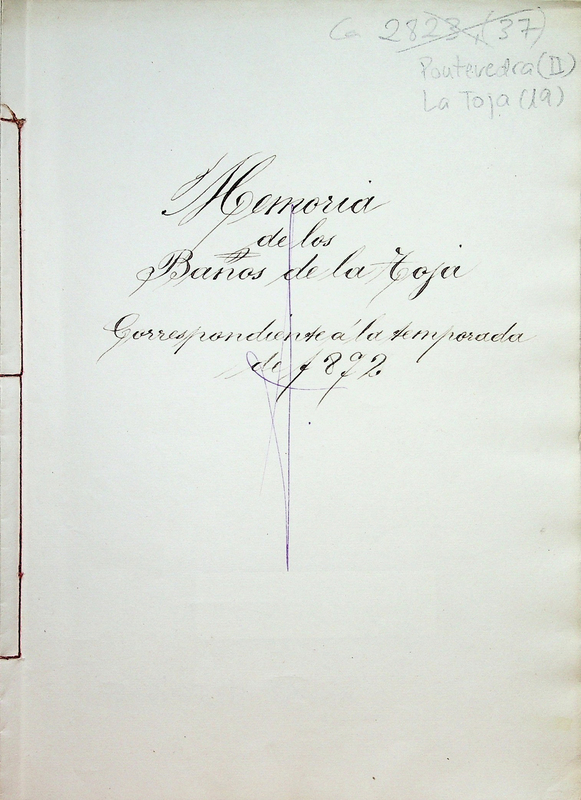 Ca 2823 (37)
Pontevedra (II)
La Toja (19)
Memoria
de los
Baños de la Toja
Correspondiente á la temporada
de 1892